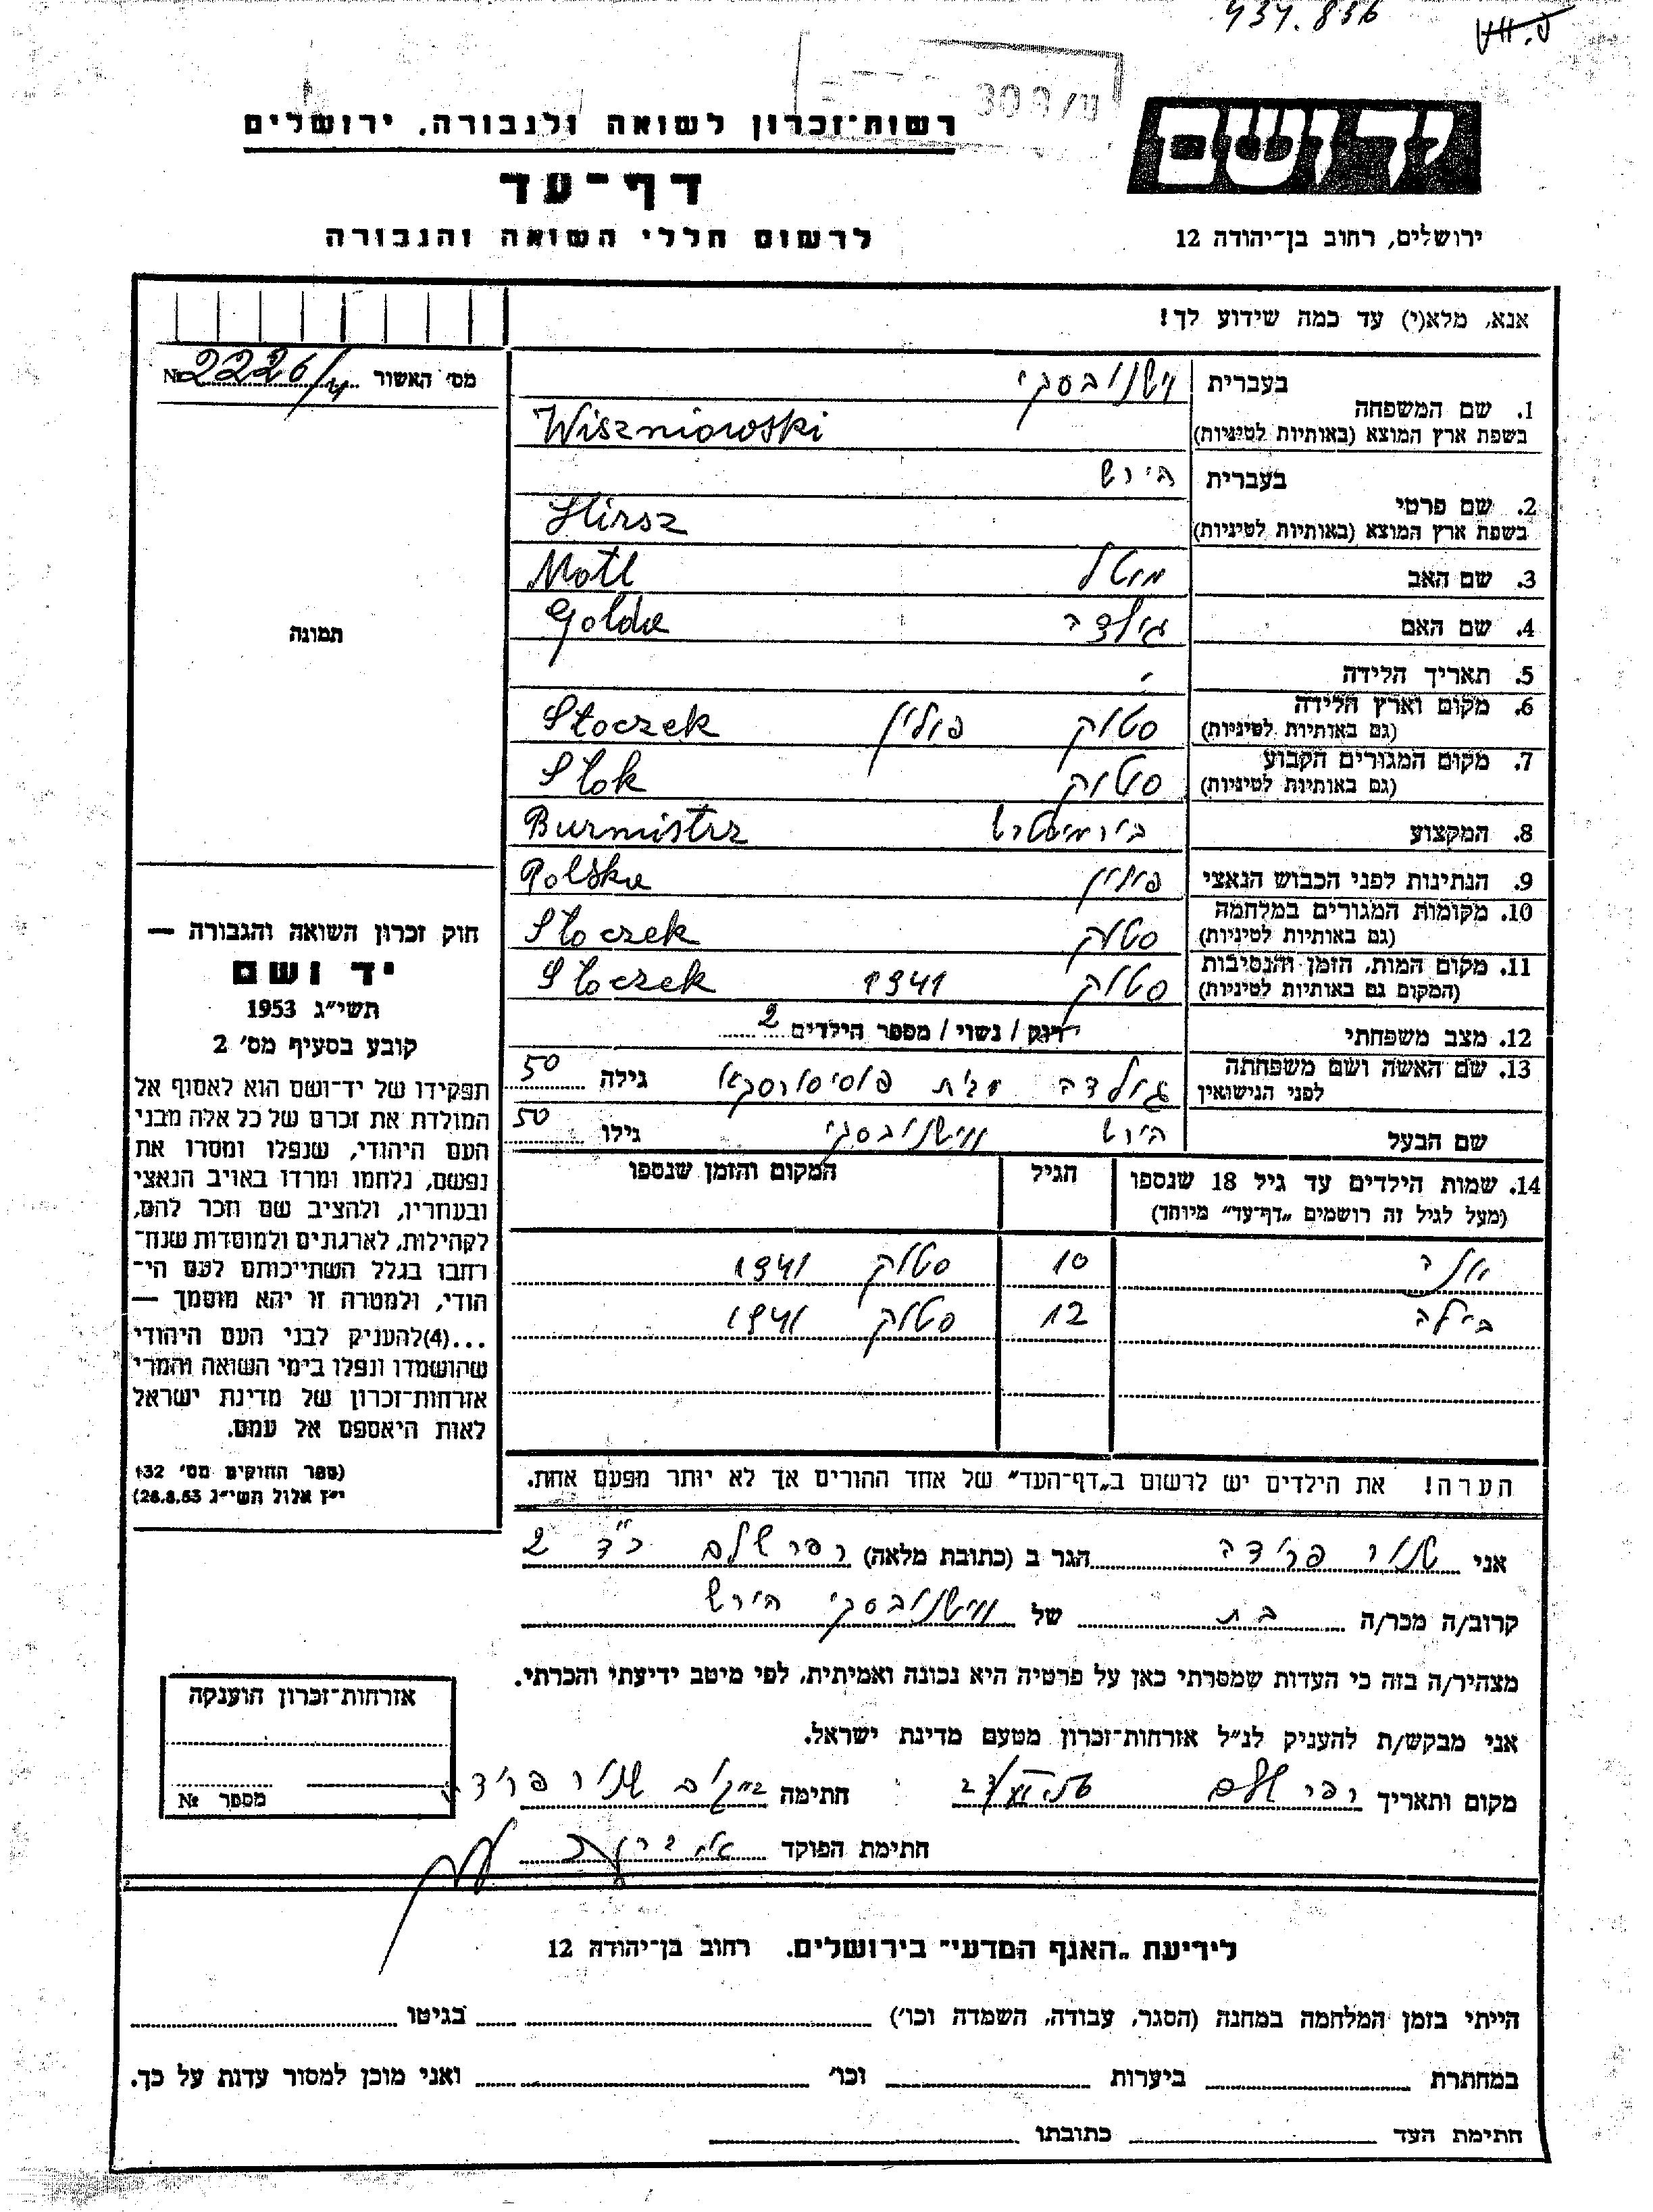 434.836
יד ושם
רשות־זכרון לשואה ולגבורה. ירושלים
דף־עד
ירושלים, רחוב בן־יהודה 12
לרשום חללי השואה והגבורה
אנא, מלא(י) עד כמה שידוע לך!
מס׳ האשור №2226/
תמונה
1. שם המשפחה בעברית
בשפת ארץ המוצא (באותיות לטיניות) Wiszniowski
2. שם פרטי בעברית הירש
בשפת ארץ המוצא (באותיות לטיניות) Hirsz
3. שם האב מוטל Motl
4. שם האם גולדה Golda
5. תאריך הלידה
6. מקום וארץ הלידה סטוק פולין Stoczek
(גם באותיות לטיניות)
7. מקום המגורים הקבוע סטוק Stok
(גם באותיות לטיניות)
8. המקצוע בורמיסטרש Burmistrz
9. הנתינות לפני הכבוש הנאצי פולין Polska
10. מקומות המגורים במלחמה סטוק Stoczek
(גם באותיות לטיניות)
11. מקום המות, הזמן והנסיבות סטוק 1941 Stoczek
(המקום גם באותיות לטיניות)
12. מצב משפחתי רוק / נשוי / מספר הילדים 2
13. שם האשה ושם משפחתה גולדה מבית גילה 50
לפני הנישואין
שם הבעל הירש ווישנובסקי גילו 50
14. שמות הילדים עד גיל 18 שנספו הגיל המקום והזמן שנספו
(מעל לגיל זה רושמים „דף־עד״ מיוחד)
10 סטוק 1941
ביילה 12 סטוק 1941
הערה! את הילדים יש לרשום ב„דף־העד״ של אחד ההורים אך לא יותר מפעם אחת.
חוק זכרון השואה והגבורה —
יד ושם
תשי״ג 1953
קובע בסעיף מס׳ 2
תפקידו של יד־ושם הוא לאסוף אל
המולדת את זכרם של כל אלה מבני
העם היהודי, שנפלו ומסרו את
נפשם, נלחמו ומרדו באויב הנאצי
ובעוזריו, ולהציב שם וזכר להם,
לקהילות, לארגונים ולמוסדות שנח־
רבו בגלל השתייכותם לעם הי־
הודי, ולמטרה זו יהא מוסמך —
...(4)להעניק לבני העם היהודי
שהושמדו ונפלו בימי השואה והמרי
אזרחות־זכרון של מדינת ישראל
לאות היאספם אל עמם.
(ספר החוקים מס׳ 132
י״ז אלול תשי״ג 28.8.53)
אני פרידה הגר ב (כתובת מלאה) 2
קרוב/ה מכר/ה בת של ווישנובסקי הירש
מצהיר/ה בזה כי העדות שמסרתי כאן על פרטיה היא נכונה ואמיתית, לפי מיטב ידיעתי והכרתי.
אני מבקש/ת להעניק לנ״ל אזרחות־זכרון מטעם מדינת ישראל.
מקום ותאריך חתימה פרידה
חתימת הפוקד
אזרחות־זכרון הוענקה
מספר №
לידיעת „האגף המדעי״ בירושלים. רחוב בן־יהודה 12
הייתי בזמן המלחמה במחנה (הסגר, עבודה, השמדה וכו׳) בגיטו
במחתרת ביערות וכו׳ ואני מוכן למסור עדות על כך.
חתימת העד כתובתו